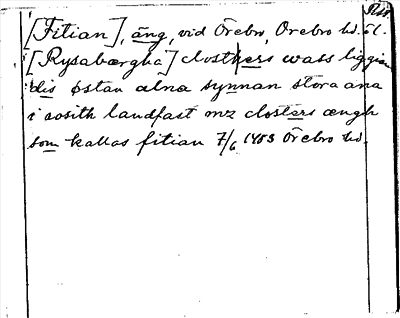 [Fitian], äng, vid Örebro, Örebro hd. Öl.
[Rysabærgha] closthers wass liggian
dis østan alna synnan stora ana
i eosith landfast mz closters ængh
som kallas fitian 7/6 1453 Örebro hd.